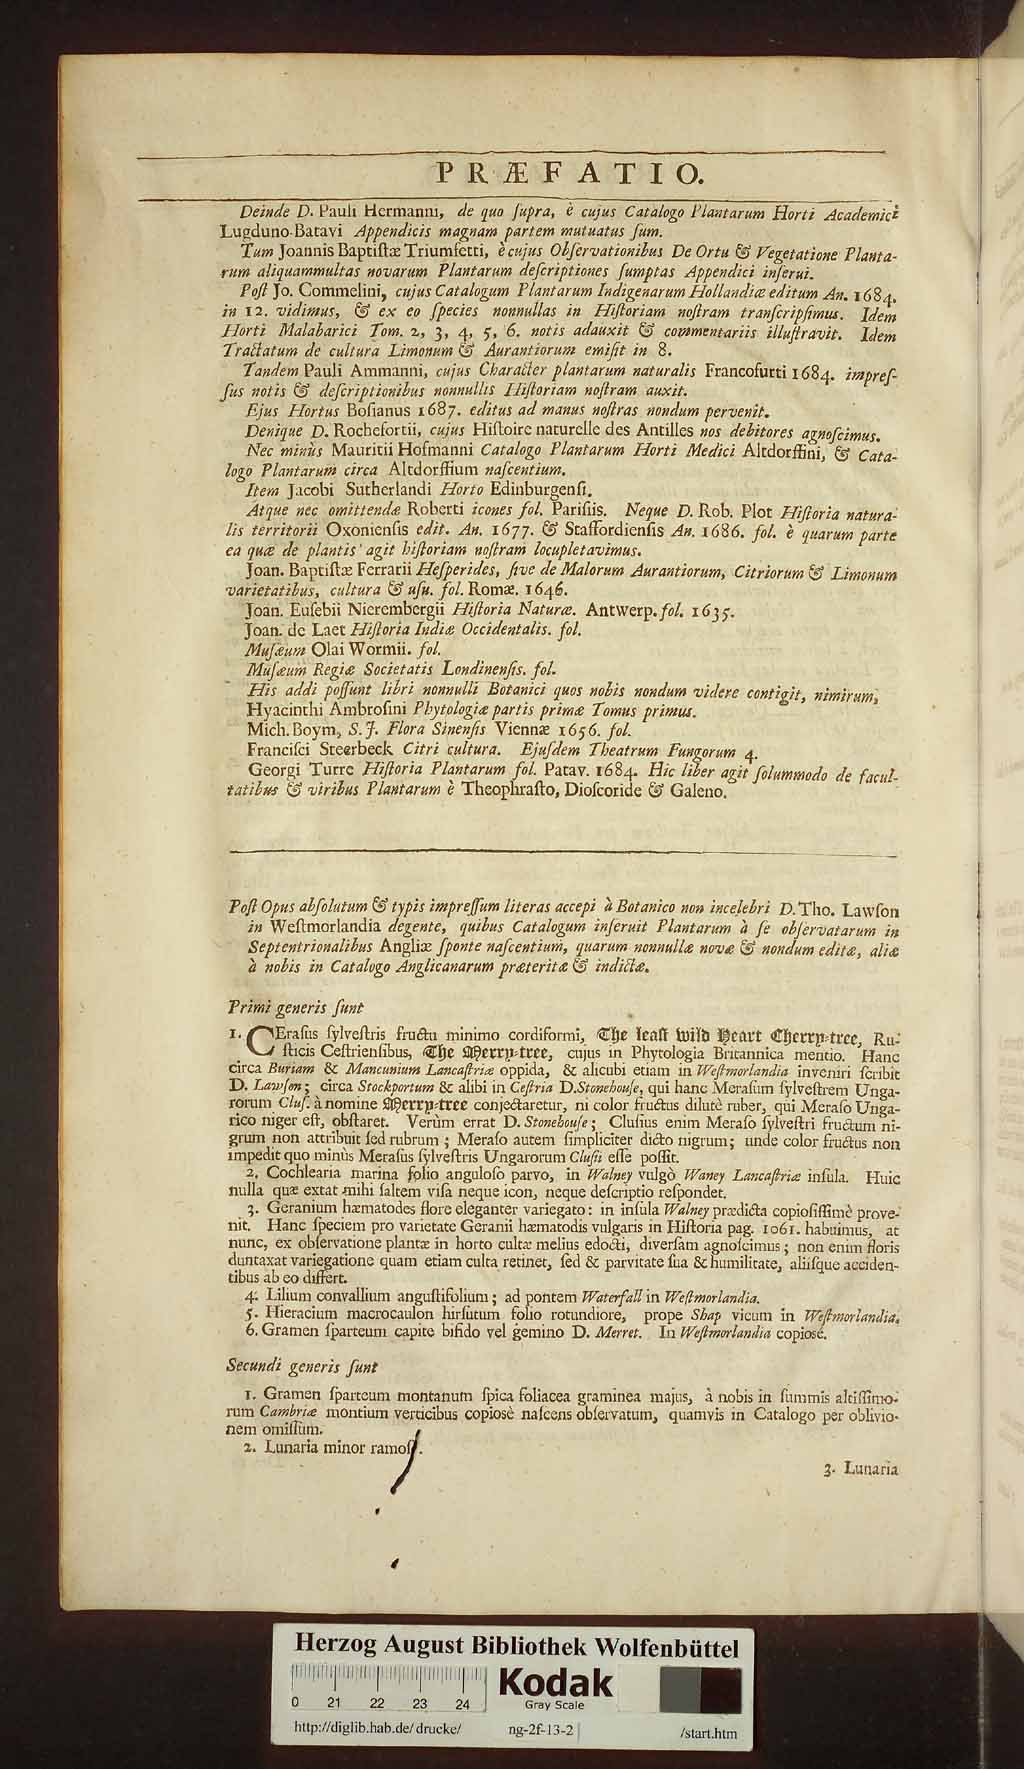 PRÆFATIO.
Deinde D. Pauli Hermanni, de quo ſupra, è cujus Catalogo Plantarum Horti Academici
Lugduno-Batavi Appendicis magnam partem mutuatus ſum.
Tum Joannis Baptiſtæ Triumfetti, è cujus Obſervationibus De Ortu & Vegetatione Planta-
rum aliquammultas novarum Plantarum deſcriptiones ſumptas Appendici inſerui.
Poſt Jo. Commelini, cujus Catalogum Plantarum Indigenarum Hollandiæ editum An. 1684.
in 12. vidimus, & ex eo ſpecies nonnullas in Hiſtoriam noſtram tranſcripſimus. Idem
Horti Malabarici Tom. 2, 3, 4, 5, 6. notis adauxit & commentariis illuſtravit. Idem
Tractatum de cultura Limonum & Aurantiorum emiſit in 8.
Tandem Pauli Ammanni, cujus Character plantarum naturalis Francofurti 1684. impreſ-
ſus notis & deſcriptionibus nonnullis Hiſtoriam noſtram auxit.
Ejus Hortus Boſianus 1687. editus ad manus noſtras nondum pervenit.
Denique D. Rochefortii, cujus Hiſtoire naturelle des Antilles nos debitores agnoſcimus.
Nec minùs Mauritii Hofmanni Catalogo Plantarum Horti Medici Altdorffini, & Cata-
logo Plantarum circa Altdorffium naſcentium.
Item Jacobi Sutherlandi Horto Edinburgenſi.
Atque nec omittendæ Roberti icones fol. Pariſiis. Neque D. Rob. Plot Hiſtoria natura-
lis territorii Oxonienſis edit. An. 1677. & Staffordienſis An. 1686. fol. è quarum parte
ea quæ de plantis agit hiſtoriam noſtram locupletavimus.
Joan. Baptiſtæ Ferrarii Heſperides, ſive de Malorum Aurantiorum, Citriorum & Limonum
varietatibus, cultura & uſu. fol. Romæ. 1646.
Joan. Euſebii Nierembergii Hiſtoria Naturæ. Antwerp. fol. 1635.
Joan. de Laet Hiſtoria Indiæ Occidentalis. fol.
Muſæum Olai Wormii. fol.
Muſæum Regiæ Societatis Londinenſis. fol.
His addi poſſunt libri nonnulli Botanici quos nobis nondum videre contigit, nimirum,
Hyacinthi Ambroſini Phytologiæ partis primæ Tomus primus.
Mich. Boym, S. J. Flora Sinenſis Viennæ 1656. fol.
Franciſci Steerbeck Citri cultura. Ejuſdem Theatrum Fungorum 4.
Georgi Turre Hiſtoria Plantarum fol. Patav. 1684. Hic liber agit ſolummodo de facul-
tatibus & viribus Plantarum è Theophraſto, Dioſcoride & Galeno.
Poſt Opus abſolutum & typis impreſſum literas accepi à Botanico non incelebri D. Tho. Lawſon
in Weſtmorlandia degente, quibus Catalogum inſeruit Plantarum à ſe obſervatarum in
Septentrionalibus Angliæ ſponte naſcentium, quarum nonnullæ novæ & nondum editæ, aliæ
à nobis in Catalogo Anglicanarum præteritæ & indictæ.
Primi generis ſunt
1. CEraſus ſylveſtris fructu minimo cordiformi, The leaſt wild Heart Cherry-tree, Ru-
ſticis Ceſtrienſibus, The Merry-tree, cujus in Phytologia Britannica mentio. Hanc
circa Buriam & Mancunium Lancaſtriæ oppida, & alicubi etiam in Weſtmorlandia inveniri ſcribit
D. Lawſon; circa Stockportum & alibi in Ceſtria D. Stonehouſe, qui hanc Meraſum ſylveſtrem Unga-
rorum Cluſ. à nomine Merry-tree conjectaretur, ni color fructus dilutè ruber, qui Meraſo Unga-
rico niger eſt, obſtaret. Verùm errat D. Stonehouſe; Cluſius enim Meraſo ſylveſtri fructum ni-
grum non attribuit ſed rubrum; Meraſo autem ſimpliciter dicto nigrum; unde color fructus non
impedit quo minùs Meraſus ſylveſtris Ungarorum Cluſii eſſe poſſit.
2. Cochlearia marina folio anguloſo parvo, in Walney vulgò Waney Lancaſtriæ inſula. Huic
nulla quæ extat mihi ſaltem viſa neque icon, neque deſcriptio reſpondet.
3. Geranium hæmatodes flore eleganter variegato: in inſula Walney prædicta copioſiſſimè prove-
nit. Hanc ſpeciem pro varietate Geranii hæmatodis vulgaris in Hiſtoria pag. 1061. habuimus, at
nunc, ex obſervatione plantæ in horto cultæ melius edocti, diverſam agnoſcimus; non enim floris
duntaxat variegatione quam etiam culta retinet, ſed & parvitate ſua & humilitate, aliiſque acciden-
tibus ab eo differt.
4. Lilium convallium anguſtifolium; ad pontem Waterfall in Weſtmorlandia.
5. Hieracium macrocaulon hirſutum folio rotundiore, prope Shap vicum in Weſtmorlandia.
6. Gramen ſparteum capite bifido vel gemino D. Merret. In Weſtmorlandia copiosè.
Secundi generis ſunt
1. Gramen ſparteum montanum ſpica foliacea graminea majus, à nobis in ſummis altiſſimo-
rum Cambriæ montium verticibus copiosè naſcens obſervatum, quamvis in Catalogo per oblivio-
nem omiſſum.
2. Lunaria minor ramoſa.
3. Lunaria
Herzog August Bibliothek Wolfenbüttel
0 21 22 23 24
Kodak
Gray Scale
http://diglib.hab.de/drucke/ ng-2f-13-2 /start.htm